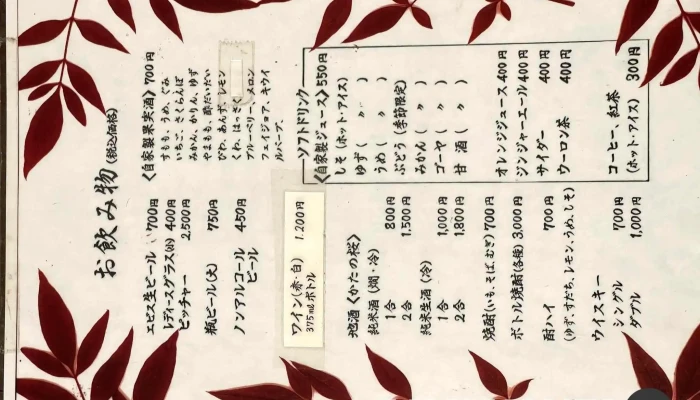 お飲み物(税込価格)
エビス生ビール 700円
レディースグラス(小) 400円
ピッチャー 2,500円
瓶ビール(大) 750円
ノンアルコール
ビール 450円
ワイン(赤・白) 1,200円
375mlボトル
地酒〈かたの桜〉
純米酒(燗・冷)
1合 800円
2合 1,500円
純米生酒(冷)
1合 1,000円
2合 1,800円
焼酎(いも、そば、むぎ) 700円
ボトル焼酎(各種) 3,000円
酎ハイ 700円
(ゆず、すだち、レモン、うめ、しそ)
ウイスキー
シングル 700円
ダブル 1,000円
〈自家製果実酒〉700円
すもも、うめ、ぐみ
いちご、さくらんぼ
みかん、かりん、ゆず
やまもも、酔だいだい
びわ、あんず、レモン
くわ、はっさく
ブルーベリー、メロン
フェイジョア、キウイ
ルバーブ、
ソフトドリンク
〈自家製ジュース〉550円
しそ(ホット・アイス)
ゆず( 〃 )
うめ( 〃 )
ぶどう(季節限定)
みかん( 〃 )
ゴーヤ( 〃 )
甘酒( 〃 )
オレンジジュース 400円
ジンジャーエール 400円
サイダー 400円
ウーロン茶 400円
コーヒー、紅茶
(ホット・アイス) 300円